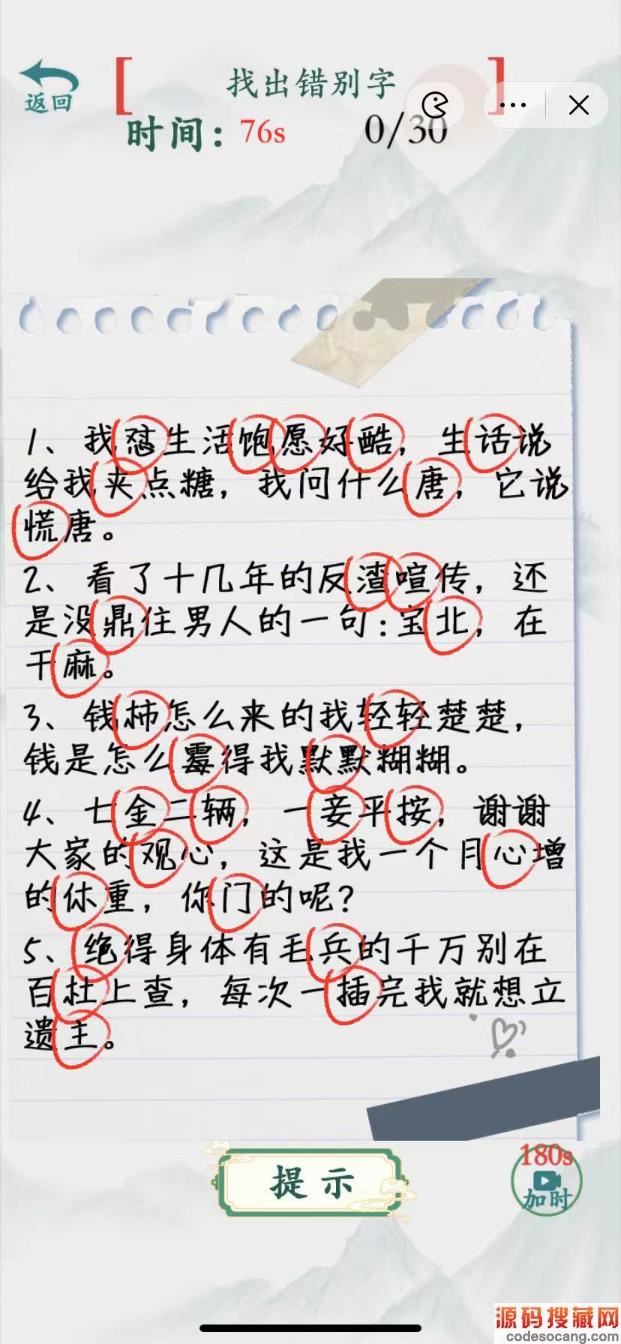 找出错别字
返回
时间：76s
0/30
1、我怼生活饱愿好酷，生话说
给我夹点糖，我问什么唐，它说
慌唐。
2、看了十几年的反渣喧传，还
是没鼎住男人的一句：宝北，在
干麻。
3、钱柿怎么来的我轻轻楚楚，
钱是怎么霉得我默默糊糊。
4、七金二辆，一妾平按，谢谢
大家的观心，这是我一个月心增
的休重，你门的呢？
5、绝得身体有毛兵的千万别在
百杜上查，每次一插完我就想立
遗主。
提示
180s
加时
源码搜藏网
codesocang.com